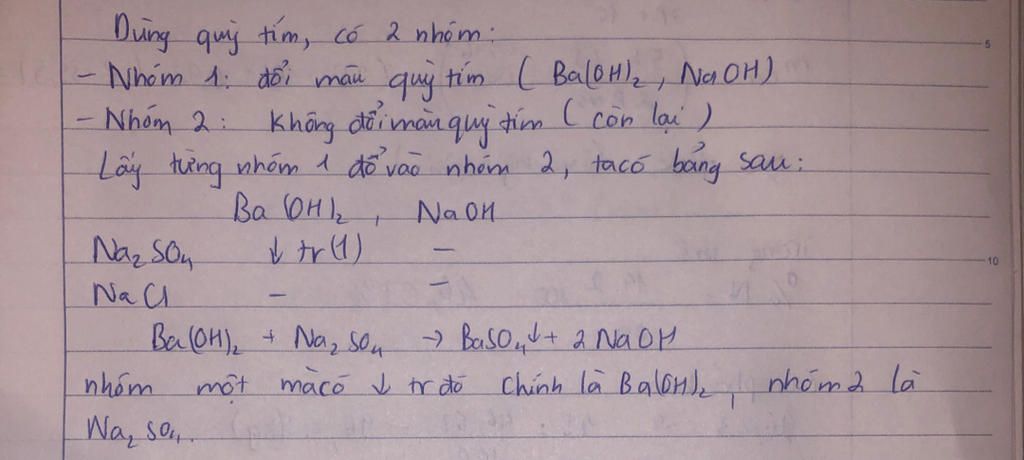 Dùng quỳ tím, có 2 nhóm:
- Nhóm 1: đổi màu quỳ tím ( Ba(OH)2, NaOH)
- Nhóm 2: Không đổi màu quỳ tím ( còn lại )
Lấy từng nhóm 1 đổ vào nhóm 2, ta có bảng sau:
Ba(OH)2, NaOH
Na2SO4 ↓ tr(1) –
NaCl – –
Ba(OH)2 + Na2SO4 → BaSO4↓ + 2NaOH
nhóm một mà có ↓ tr đó chính là Ba(OH)2, nhóm 2 là
Na2SO4.
5
10